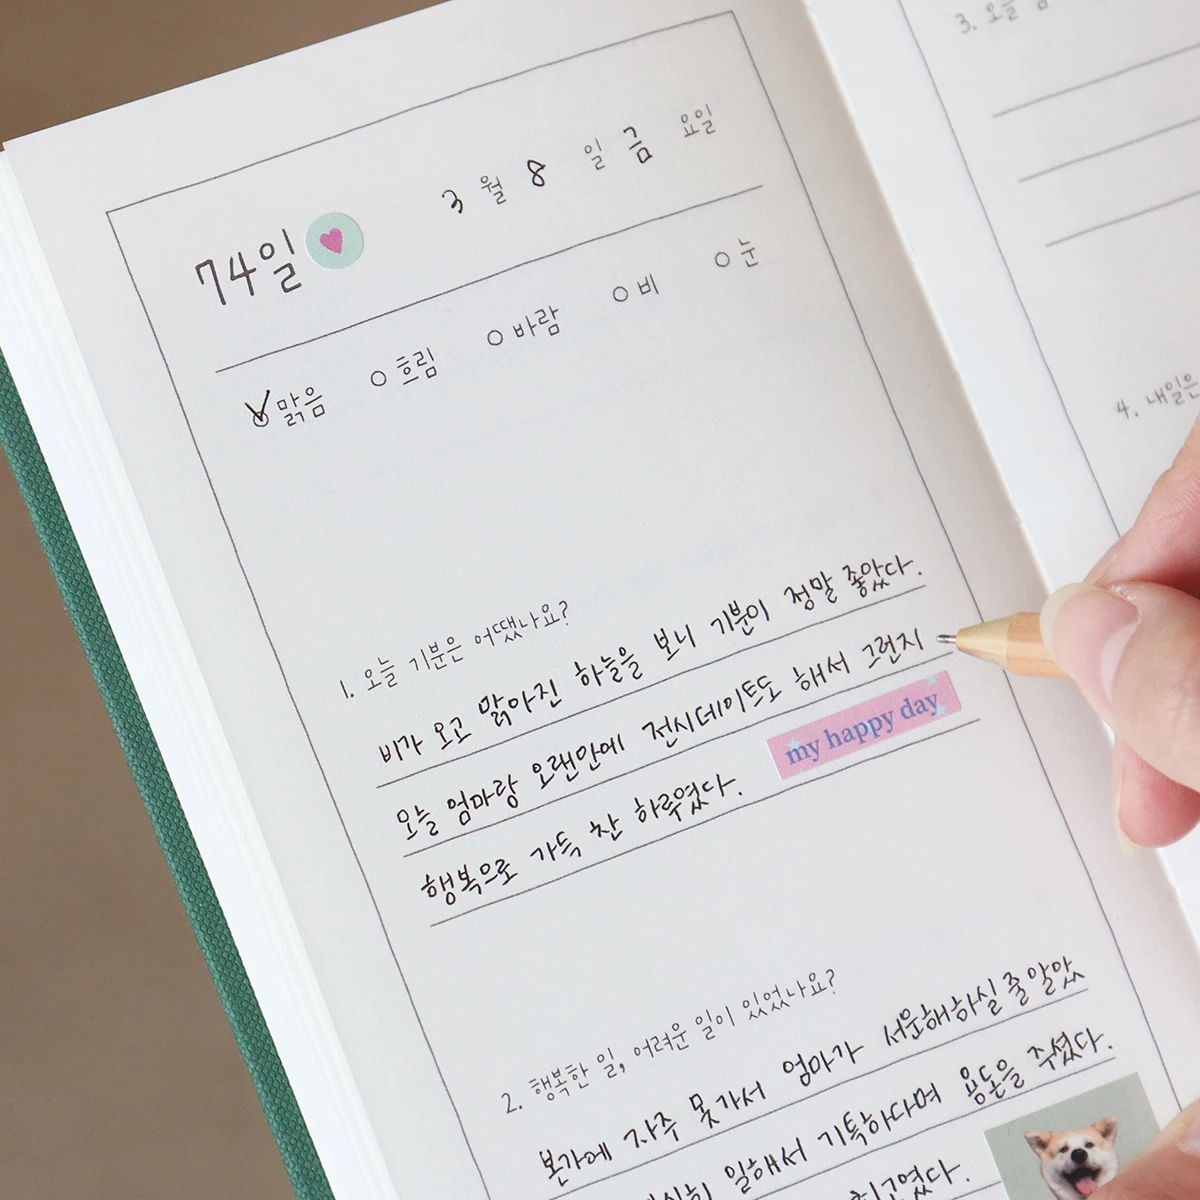 3월 8일 금요일
74일
맑음 흐림 바람 비 눈
1. 오늘 기분은 어땠나요?
비가 오고 맑아진 하늘을 보니 기분이 정말 좋았다.
오늘 엄마랑 오랜만에 전시데이트도 해서 그런지
행복으로 가득 찬 하루였다.
my happy day
2. 행복한 일, 어려운 일이 있었나요?
본가에 자주 못가서 엄마가 서운해하실 줄 알았
일해서 기특하다며 용돈을 주셨다.
최고였다.
3. 오늘
4. 내일은